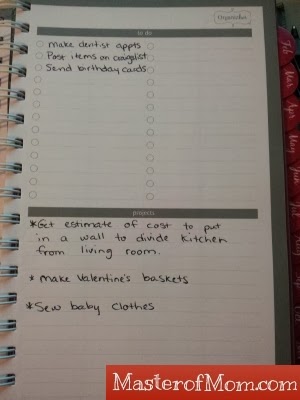 to do
make dentist appts
Post items on craigslist
Send birthday cards
projects
*Get estimate of cost to put
in a wall to divide kitchen
from living room.
* make Valentine's baskets
*Sew baby clothes
Feb
Mar
Apr
May
Jun
MasterofMom.com